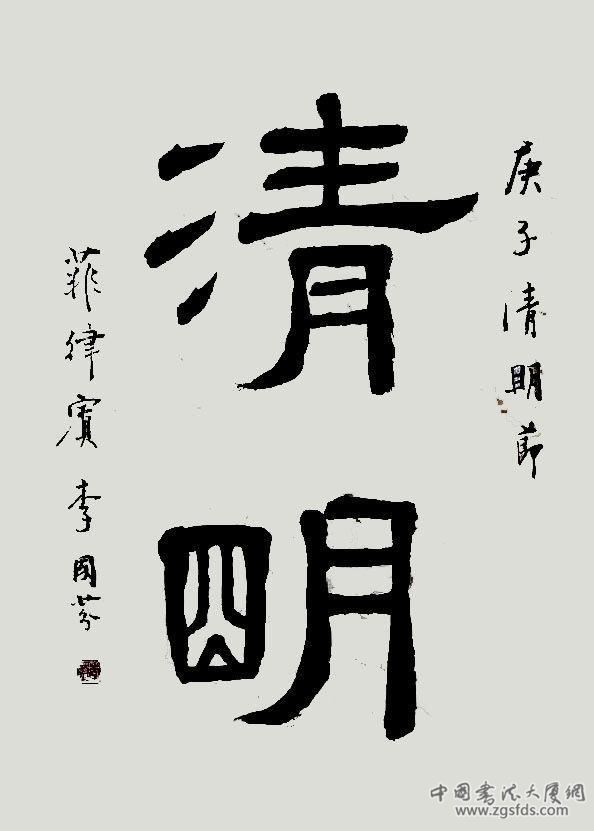 庚子清明節
清明
菲律賓李國芬
中国书法大厦網
www.zgsfds.com